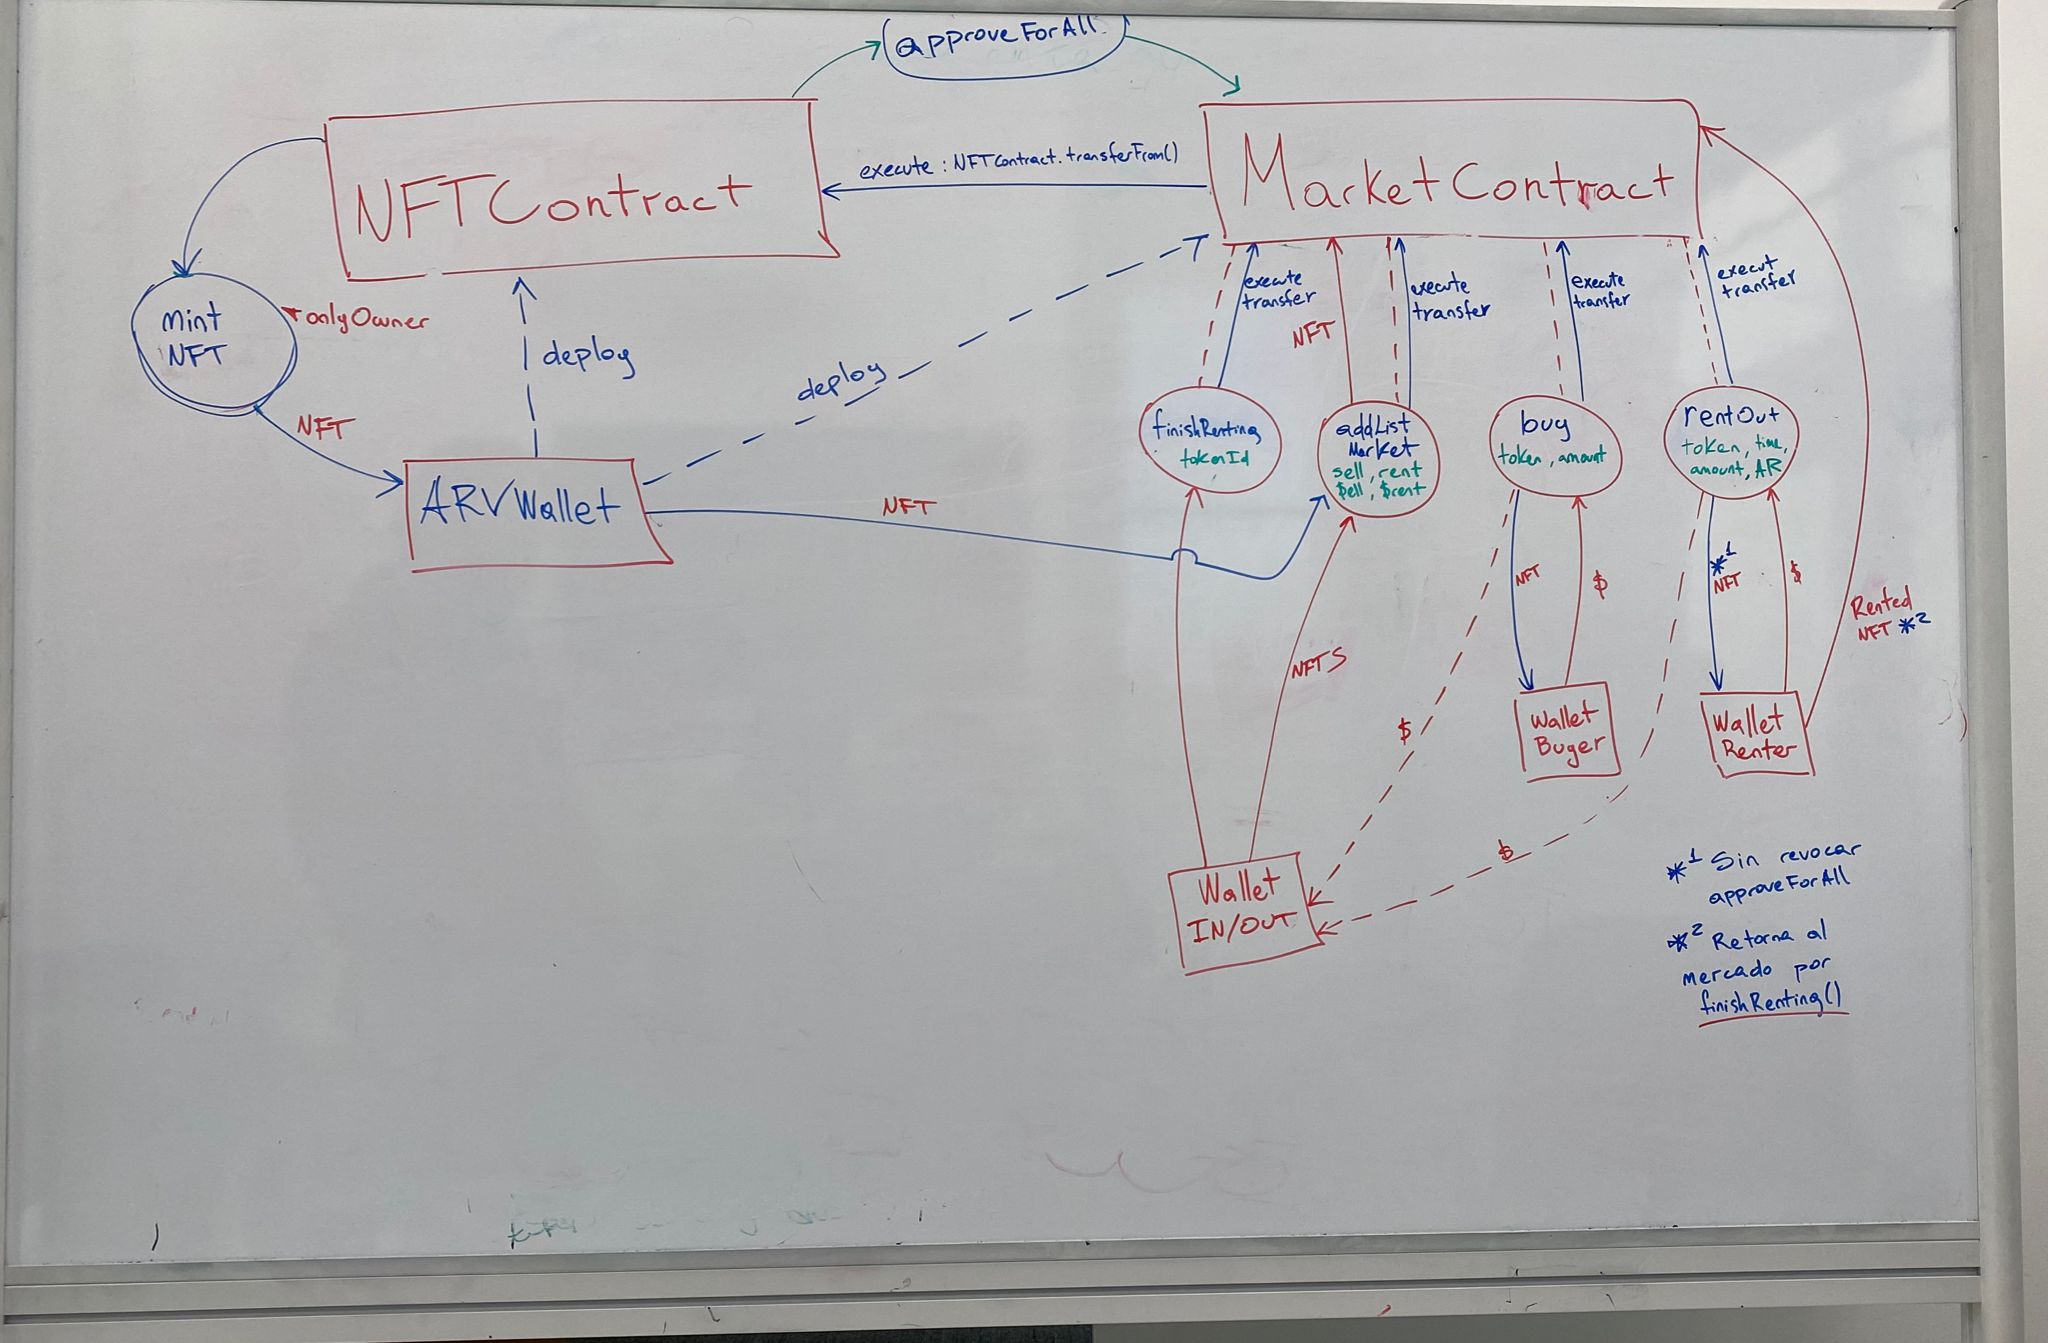 approveForAll
execute : NFTContract.transferFrom()
NFTContract
MarketContract
Mint
NFT
onlyOwner
deploy
deploy
NFT
ARVWallet
NFT
execute
transfer
NFT
execute
transfer
execute
transfer
execut
transfer
finishRenting
tokenId
addList
Market
sell, rent
$ell, $rent
buy
token, amount
rentOut
token, time,
amount, AR
NFT
$
*1
NFT
$
Rented
NFT *2
NFTS
$
$
Wallet
Buyer
Wallet
Renter
Wallet
IN/OUT
*1 Sin revocar
approveForAll
*2 Retorna al
mercado por
finishRenting()